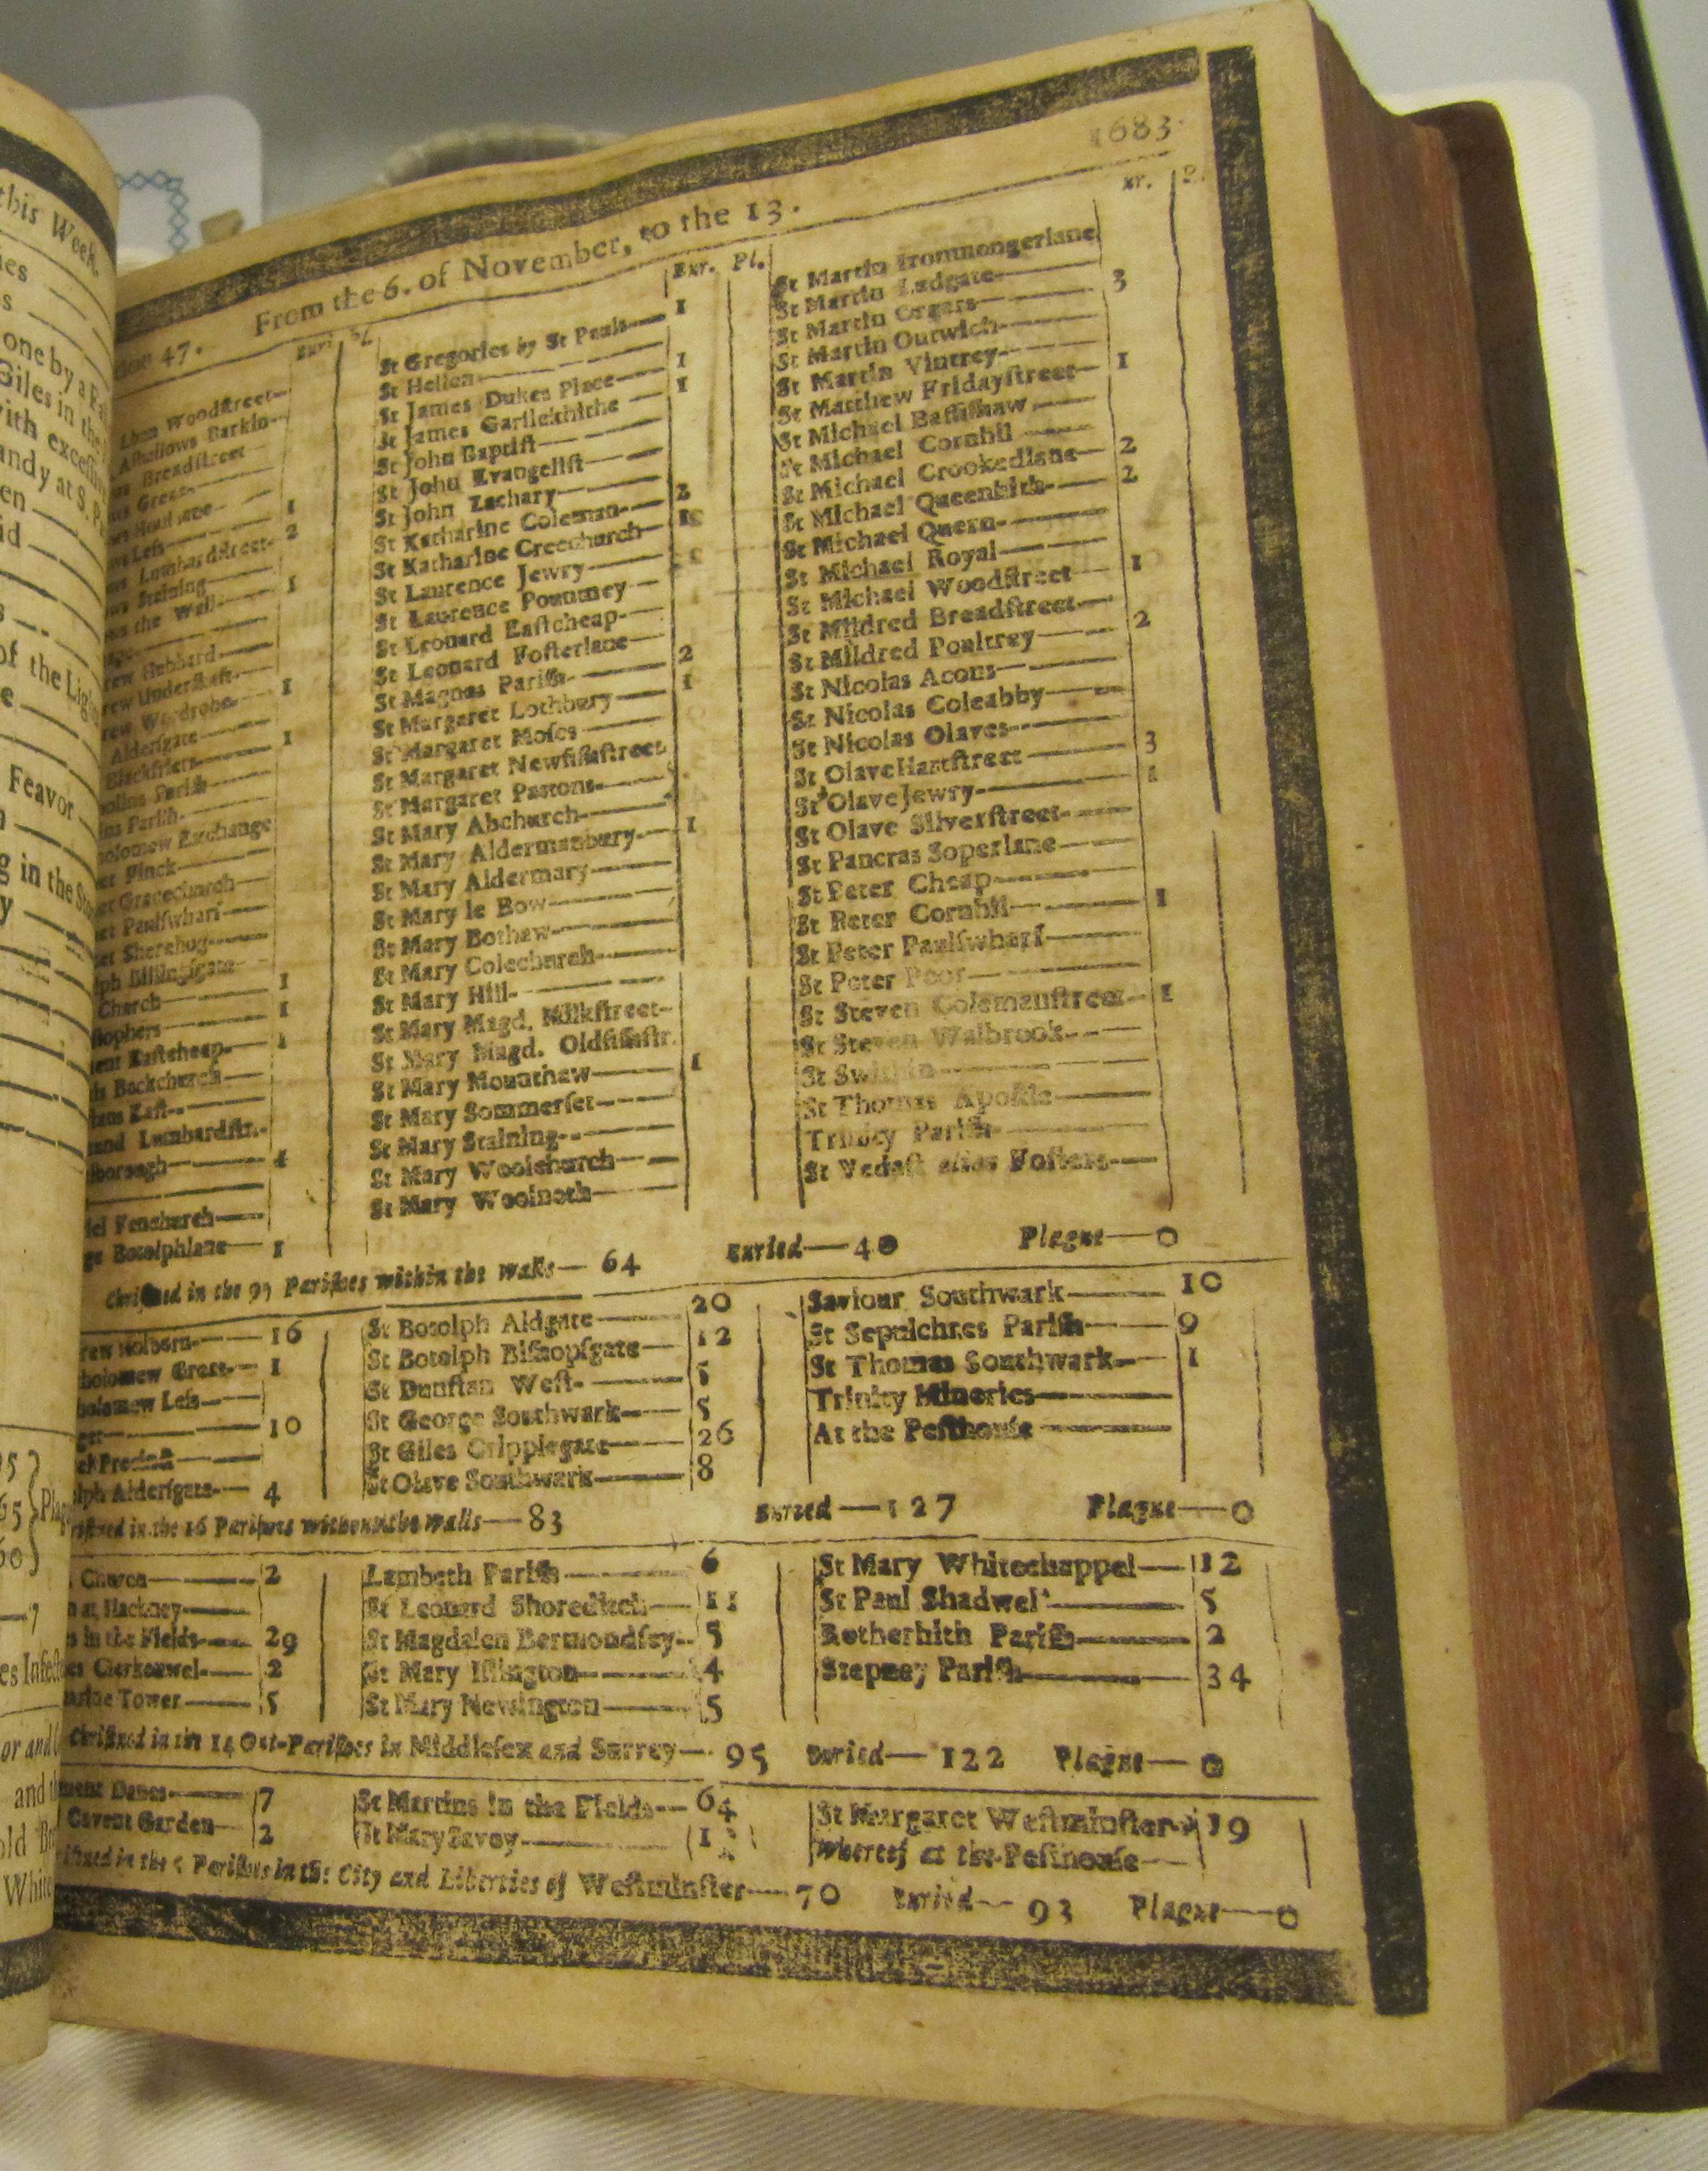 this Week.
one by a
Giles in the
with excessive
andy at S. P
of the Ligh
Feavor
g in the Sto
Plag
es Infec
or and
and th
old
White
1683.
47. From the 6. of November, to the 13.
Bur. Pl.
Bur. Pl.
Woodstreet
Alhallows Barkin
Breadstreet
Great
1
Lombardstreet- 2
Staining
the Wall 1
rew Hubbard
rew Undershaft
rew Wardrobe 1
Aldersgate
Blackfriers 1
Parish
Parish
olomew Exchange
Finck
Gracechurch
et Paulswharf
et Sherehog
lph Billingsgate
Church 1
stophers 1
ent Eastcheap 1
Backchurch
East
and Lumbardstr.
borough
iel Fenchurch
ge Botolphlane 1
St Gregories by St Pauls 1
St Hellen
St James Dukes Place 1
St James Garlickhithe 1
St John Baptist
St John Evangelist
St John Zachary
St Katharine Coleman 2
St Katharine Creechurch
St Laurence Jewry
St Laurence Pountney
St Leonard Eastcheap
St Leonard Fosterlane
St Magnus Parish 2
St Margaret Lothbury 1
St Margaret Moses
St Margaret Newfishstreet
St Margaret Pattons
St Mary Abchurch
St Mary Aldermanbury 1
St Mary Aldermary
St Mary le Bow
St Mary Bothaw
St Mary Colechurch
St Mary Hill
St Mary Magd. Milkstreet
St Mary Magd. Oldfishstr.
St Mary Mounthaw 1
St Mary Sommerset
St Mary Staining
St Mary Woolchurch
St Mary Woolnoth
St Martin Ironmongerlane
St Martin Ludgate 3
St Martin Orgars
St Martin Outwich
St Martin Vintrey 1
St Matthew Fridaystreet
St Michael Bassishaw
St Michael Cornhil
St Michael Crookedlane 2
St Michael Queenhith 2
St Michael Quern
St Michael Royal
St Michael Woodstreet 1
St Mildred Breadstreet
St Mildred Poultrey 2
St Nicolas Acons
St Nicolas Coleabby
St Nicolas Olaves
St Olave Hartstreet 3
St Olave Jewry 1
St Olave Silverstreet
St Pancras Soperlane
St Peter Cheap
St Peter Cornhil 1
St Peter Paulswharf
St Peter Poor
St Steven Colemanstreet 1
St Steven Walbrook
St Swithin
St Thomas Apostle
Trinity Parish
St Vedast alias Fosters
Christned in the 97 Parishes within the walls— 64 Buried—40 Plague—0
rew Holborn 16
holomew Great 1
holomew Less
10
Precinct
lph Aldersgate 4
St Botolph Aldgate 20
St Botolph Bishopsgate 12
St Dunstan West 5
St George Southwark 5
St Giles Cripplegate 26
St Olave Southwark 8
Saviour Southwark 10
St Sepulchres Parish 9
St Thomas Southwark 1
Trinity Minories
At the Pesthouse
ristned in the 16 Parishes without the walls—83 Buried—127 Plague—0
Church 2
at Hackney
s in the Fields 29
es Clerkenwel 2
arine Tower 5
Lambeth Parish 6
St Leonard Shoreditch 11
St Magdalen Bermondsey 5
St Mary Islington 4
St Mary Newington 5
St Mary Whitechappel 12
St Paul Shadwel 5
Rotherhith Parish 2
Stepney Parish 34
Christned in the 14 Out-Parishes in Middlesex and Surrey— 95 Buried— 122 Plague— 0
ment Danes 7
Covent Garden 2
St Martins in the Fields 64
St Mary Savoy 1
St Margaret Westminster 19
Whereof at the Pesthouse
istned in the 5 Parishes in the City and Liberties of Westminster—70 Buried— 93 Plague—0